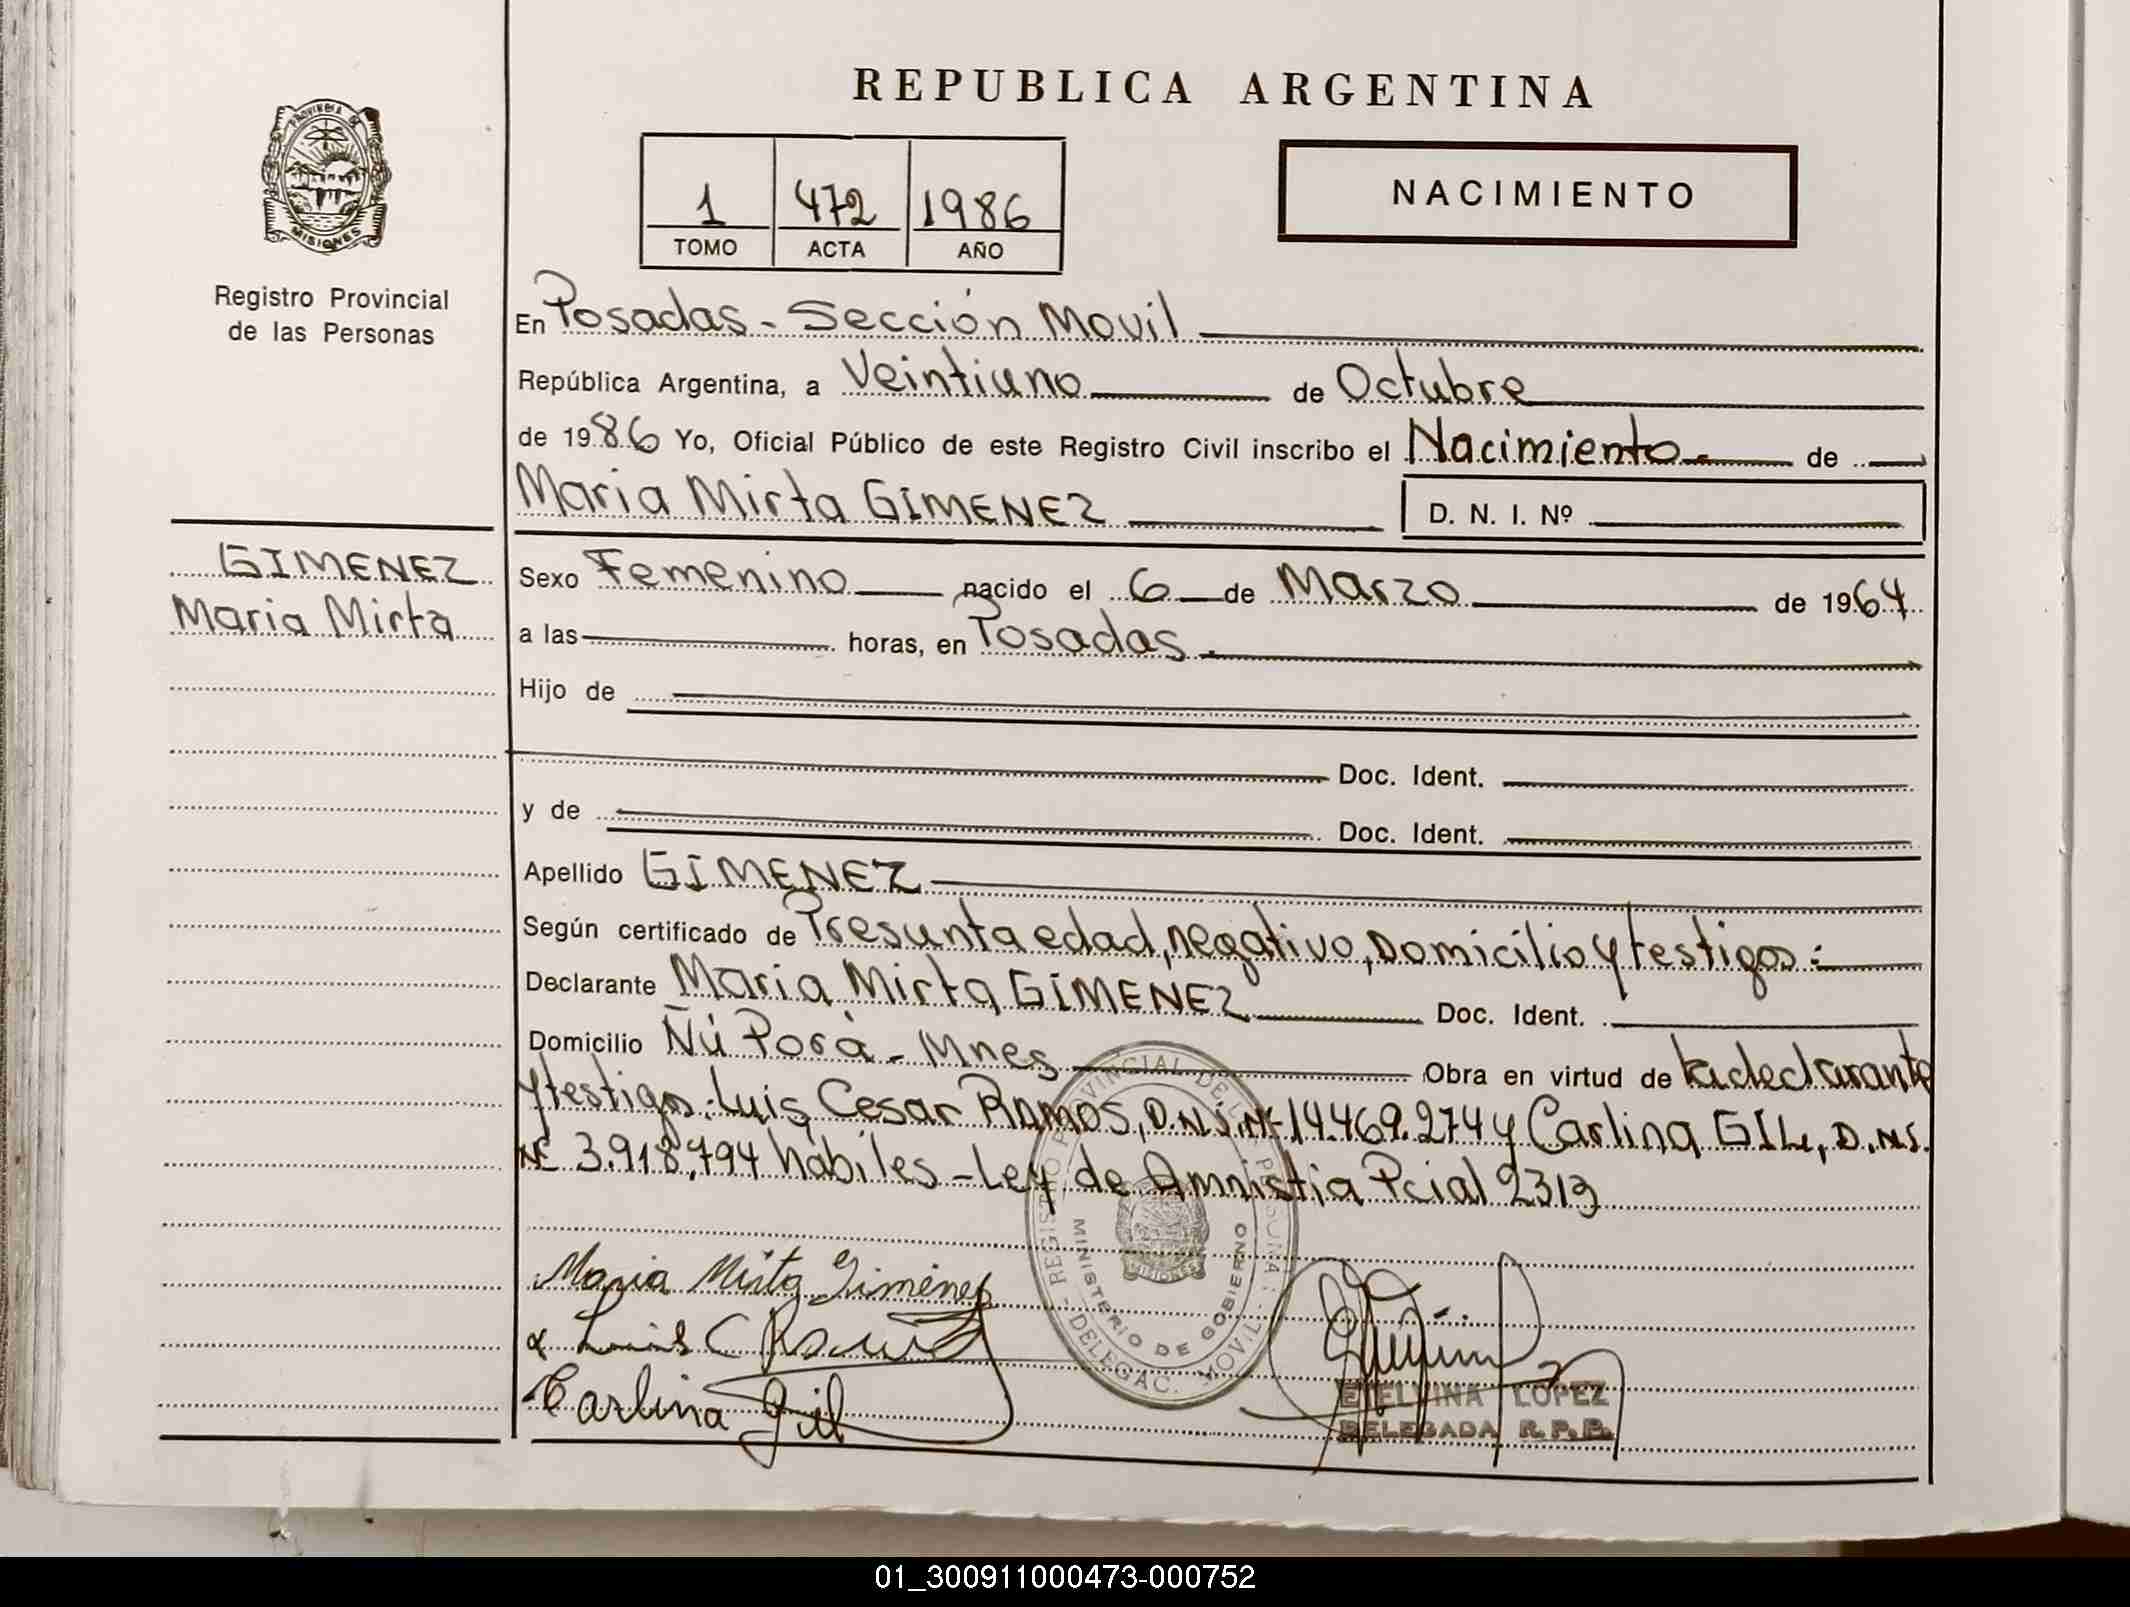 REPUBLICA ARGENTINA
PROVINCIA DE
MISIONES
Registro Provincial
de las Personas
1 472 1986
TOMO ACTA AÑO
NACIMIENTO
En Posadas - Sección Movil
República Argentina, a Veintiuno de Octubre
de 1986 Yo, Oficial Público de este Registro Civil inscribo el Nacimiento.- de
Maria Mirta GIMENEZ D. N. I. Nº
GIMENEZ
Maria Mirta
Sexo Femenino nacido el 6 de Marzo de 1964
a las horas, en Posadas.
Hijo de
Doc. Ident.
y de Doc. Ident.
Apellido GIMENEZ
Según certificado de Presunta edad, negativo, Domicilio y testigos:
Declarante Maria Mirta GIMENEZ Doc. Ident.
Domicilio Ñú Porà - Mnes Obra en virtud de La declarante
y testigos: Luis Cesar RAMOS, D.N.I. Nº 14.469.274 y Carlina GIL, D.N.I.
Nº 3.918.794 hábiles - Ley de Amnistia Pcial 2313
Maria Mirta Giménez
Luis C Ramos
Carlina Gil
REGISTRO PROVINCIAL DE LAS PERSONAS
MINISTERIO DE GOBIERNO
MISIONES
DELEGAC. MOVIL
ETELVINA LOPEZ
DELEGADA R.P.P.
01_300911000473-000752